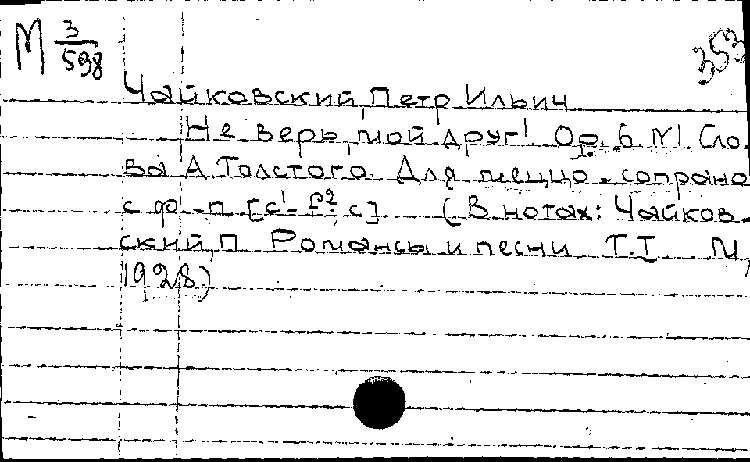 М 3/598
353
Чайковский, Петр Ильич
Не верь, мой друг! Op. 6 N1. Сло-
ва А. Толстого. Для меццо-сопрано
с ф-п [c¹-f²; c] (В нотах: Чайков-
ский, П. Романсы и песни Т.I М,
1928)